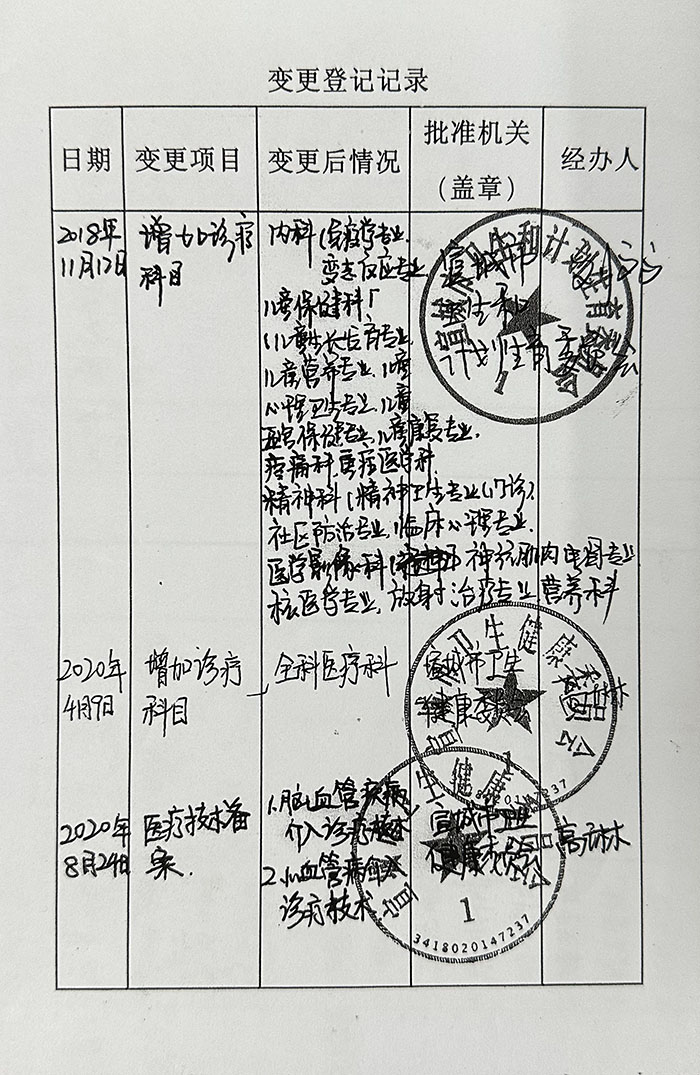 变更登记记录
日期 变更项目 变更后情况 批准机关（盖章） 经办人
2018年
11月12日
增加诊疗
科目
内科(免疫学专业.
变态反应专业
儿童保健科
(儿童生长发育专业
儿童营养专业.儿童
心理卫生专业.儿童
五官保健专业.儿童康复专业.
疼痛科.重症医学科.
精神科(精神卫生专业(门诊)
社区防治专业,临床心理专业.
医学影像科( 神经肌肉电图专业
核医学专业,放射治疗专业.营养科
宣城市
卫生和
计划生育委员会
2020年
4月9日
增加诊疗
科目
全科医疗科
宣城市卫生
健康委员会
2020年
8月24日
医疗技术备
案.
1.脑血管疾病
介入诊疗技术
2.心血管疾病介入
诊疗技术
宣城市卫生
健康委员会
宣城市卫生和计划生育委员会
1
宣城市卫生健康委员会
1
宣城市卫生健康委员会
1
3418020147237